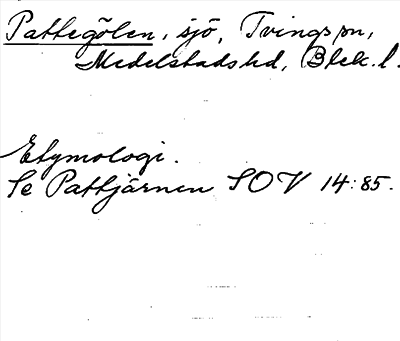 Pattegölen, sjö, Tvings sn,
Medelstads hd, Blek. l.
Etymologi.
Se Pattjärnen SOV 14:85.